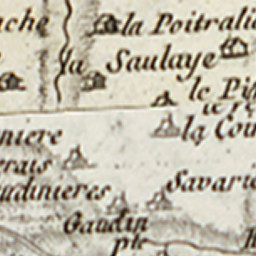 la Poitrali
la Saulaye
le Pi
la Cou
niere
erais
udinieres
Savari
Gaudin